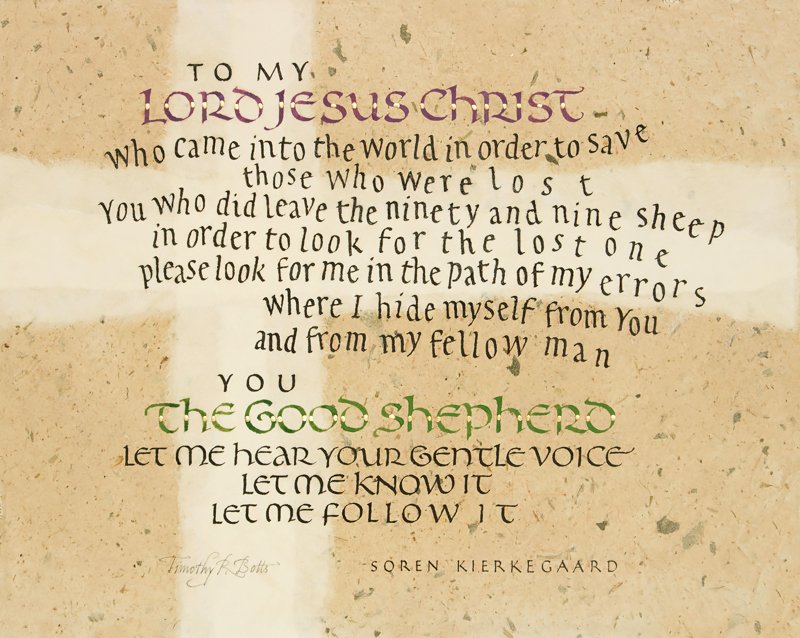 TO MY
LORD JESUS CHRIST
who came into the world in order to save
those who were lost
You who did leave the ninety and nine sheep
in order to look for the lost one
please look for me in the path of my errors
where I hide myself from You
and from my fellow man
YOU
THE GOOD SHEPHERD
LET ME HEAR YOUR GENTLE VOICE
LET ME KNOW IT
LET ME FOLLOW IT
Timothy R. Botts
SOREN KIERKEGAARD